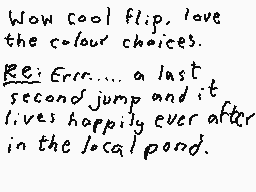 Wow cool flip, love
the colour choices.
Re: Errr..... a last
second jump and it
lives happily ever after
in the local pond.